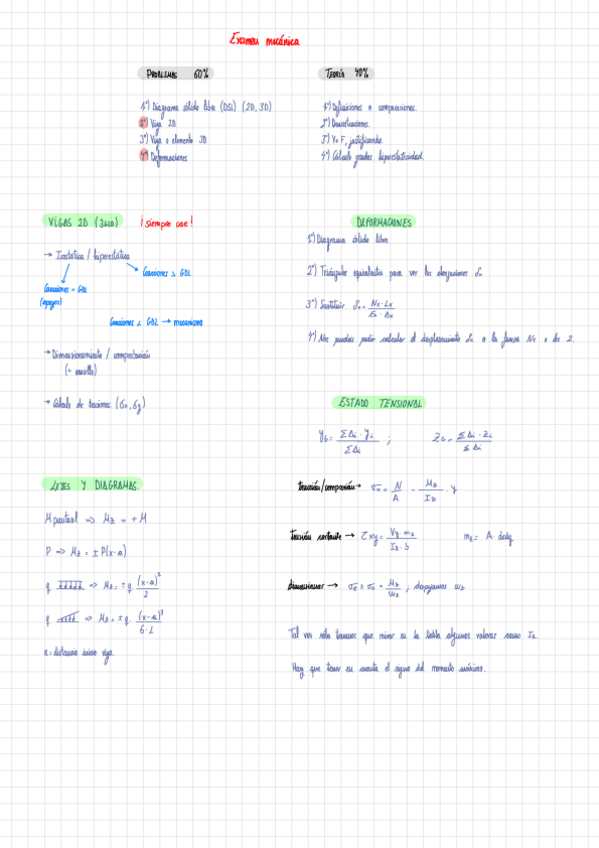 Examen mecánica
PROBLEMAS 60%
1º) Diagrama sólido libre (DSL) (2D, 3D)
2º) Viga 2D
3º) Viga o elemento 3D
4º) Deformaciones
TEORÍA 40%
1º) Definiciones o comparaciones.
2º) Demostraciones.
3º) V o F, justificando.
4º) Cálculo grados hiperestaticidad.
VIGAS 2D ¡siempre cae!
→ Isostática / hiperestática
Coacciones = GDL
(apoyos)
Coacciones > GDL
Coacciones < GDL → mecanismo
→ Dimensionamiento / comprobación
→ Cálculo de tensiones (σx, σy)
LEYES Y DIAGRAMAS
M puntual => Mz = + M
P => Mz = ± P(x-a)
q => Mz = ± q (x-a)² / 2
q => Mz = ± q · (x-a)³ / 6·L
a = distancia inicio viga
DEFORMACIONES
1º) Diagrama sólido libre
2º) Triángulos equivalentes para ver las elongaciones
3º) Sustituir
4º) Nos pueden pedir calcular el desplazamiento o la fuerza o los 2.
ESTADO TENSIONAL
yG = ΣAi · yi / ΣAi ; zG = ΣAi · zi / ΣAi
tracción/compresión → σx = N / A - Mz / Iz · y
tensión cortante → τxy = Vy · mz / Iz · b mz = A · dcdg
dimensionar → , despejamos wz
Tal vez sólo tenemos que mirar en la tabla algunos valores como Iz
Hay que tener en cuenta el signo del momento máximo.